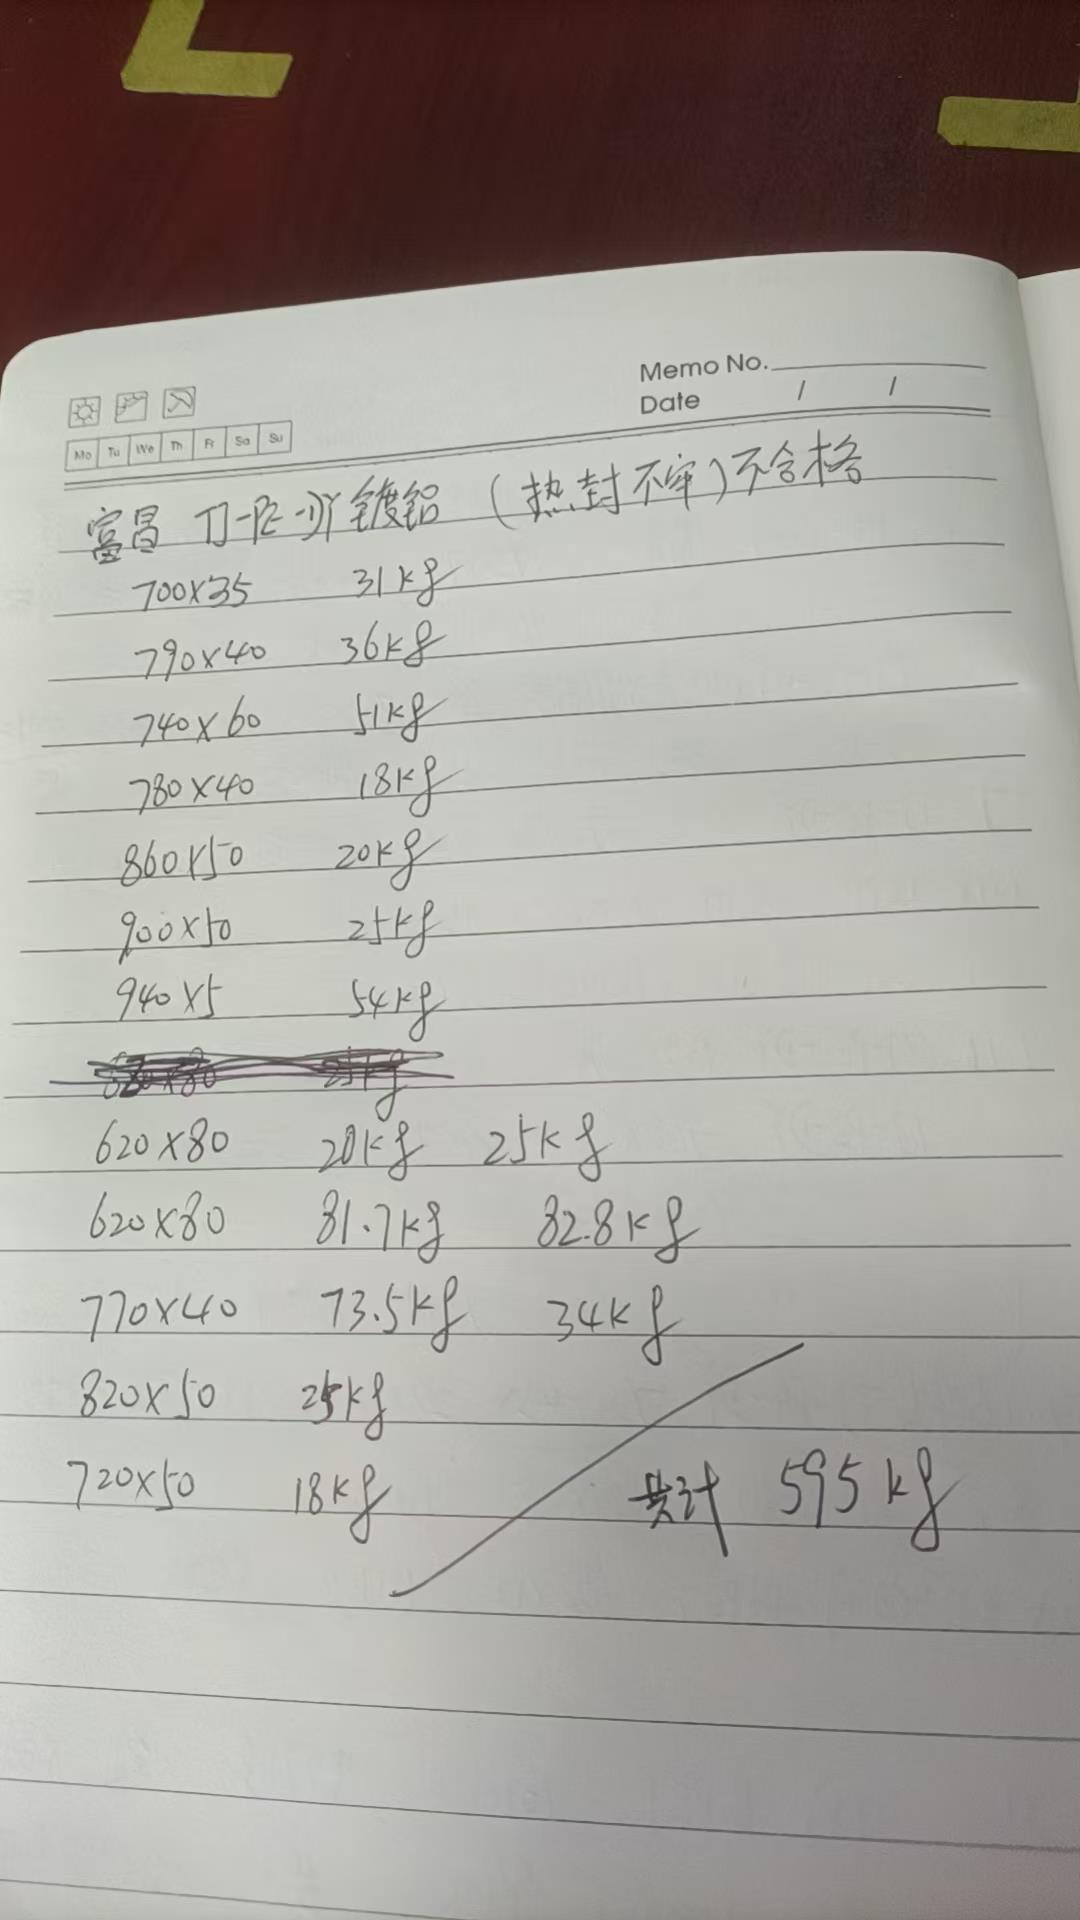 Memo No.
Date / /
Mo Tu We Th Fr Sa Su
富昌 镀铝 (热封不牢) 不合格
700×35 31kg
790×40 36kg
740×60 51kg
780×40 18kg
860×50 20kg
900×50 25kg
940×5 54kg
620×80 20kg 25kg
620×80 81.7kg 82.8kg
770×40 73.5kg 34kg
820×50 25kg
720×50 18kg
共计 595kg